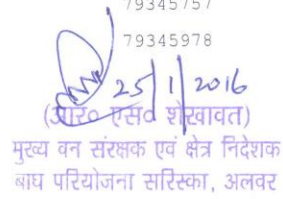 79345757
79345978
25/1/2016
(आर० एस० शेखावत)
मुख्य वन संरक्षक एवं क्षेत्र निदेशक
बाघ परियोजना सरिस्का, अलवर